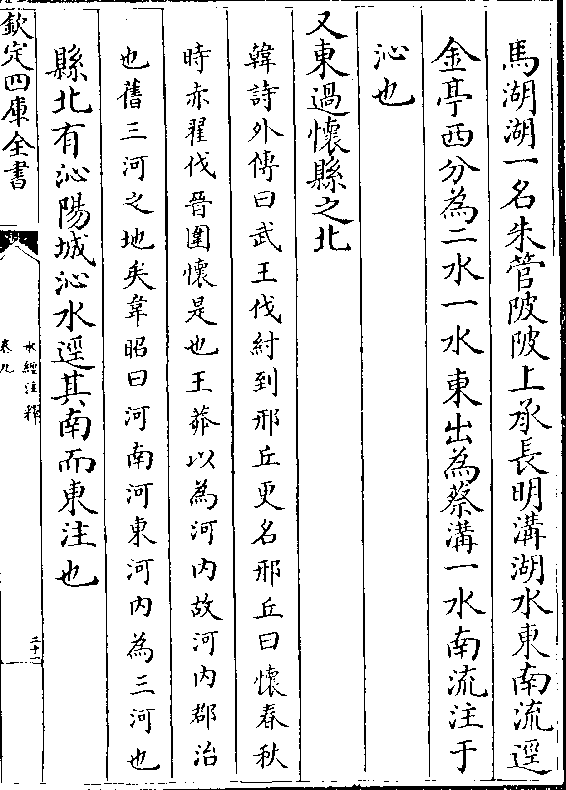 馬湖湖一名朱管陂陂上承長明溝湖水東南流逕
金亭西分為二水一水東出為蔡溝一水南流注于
沁也
又東過懷縣之北
韓詩外傳曰武王伐紂到邢丘更名邢丘曰懷春秋
時赤翟伐晉圍懷是也王莽以為河內故河內郡治
也舊三河之地矣韋昭曰河南河東河內為三河也
縣北有沁陽城沁水逕其南而東注也
欽定四庫全書
水經注釋
卷九
二十二